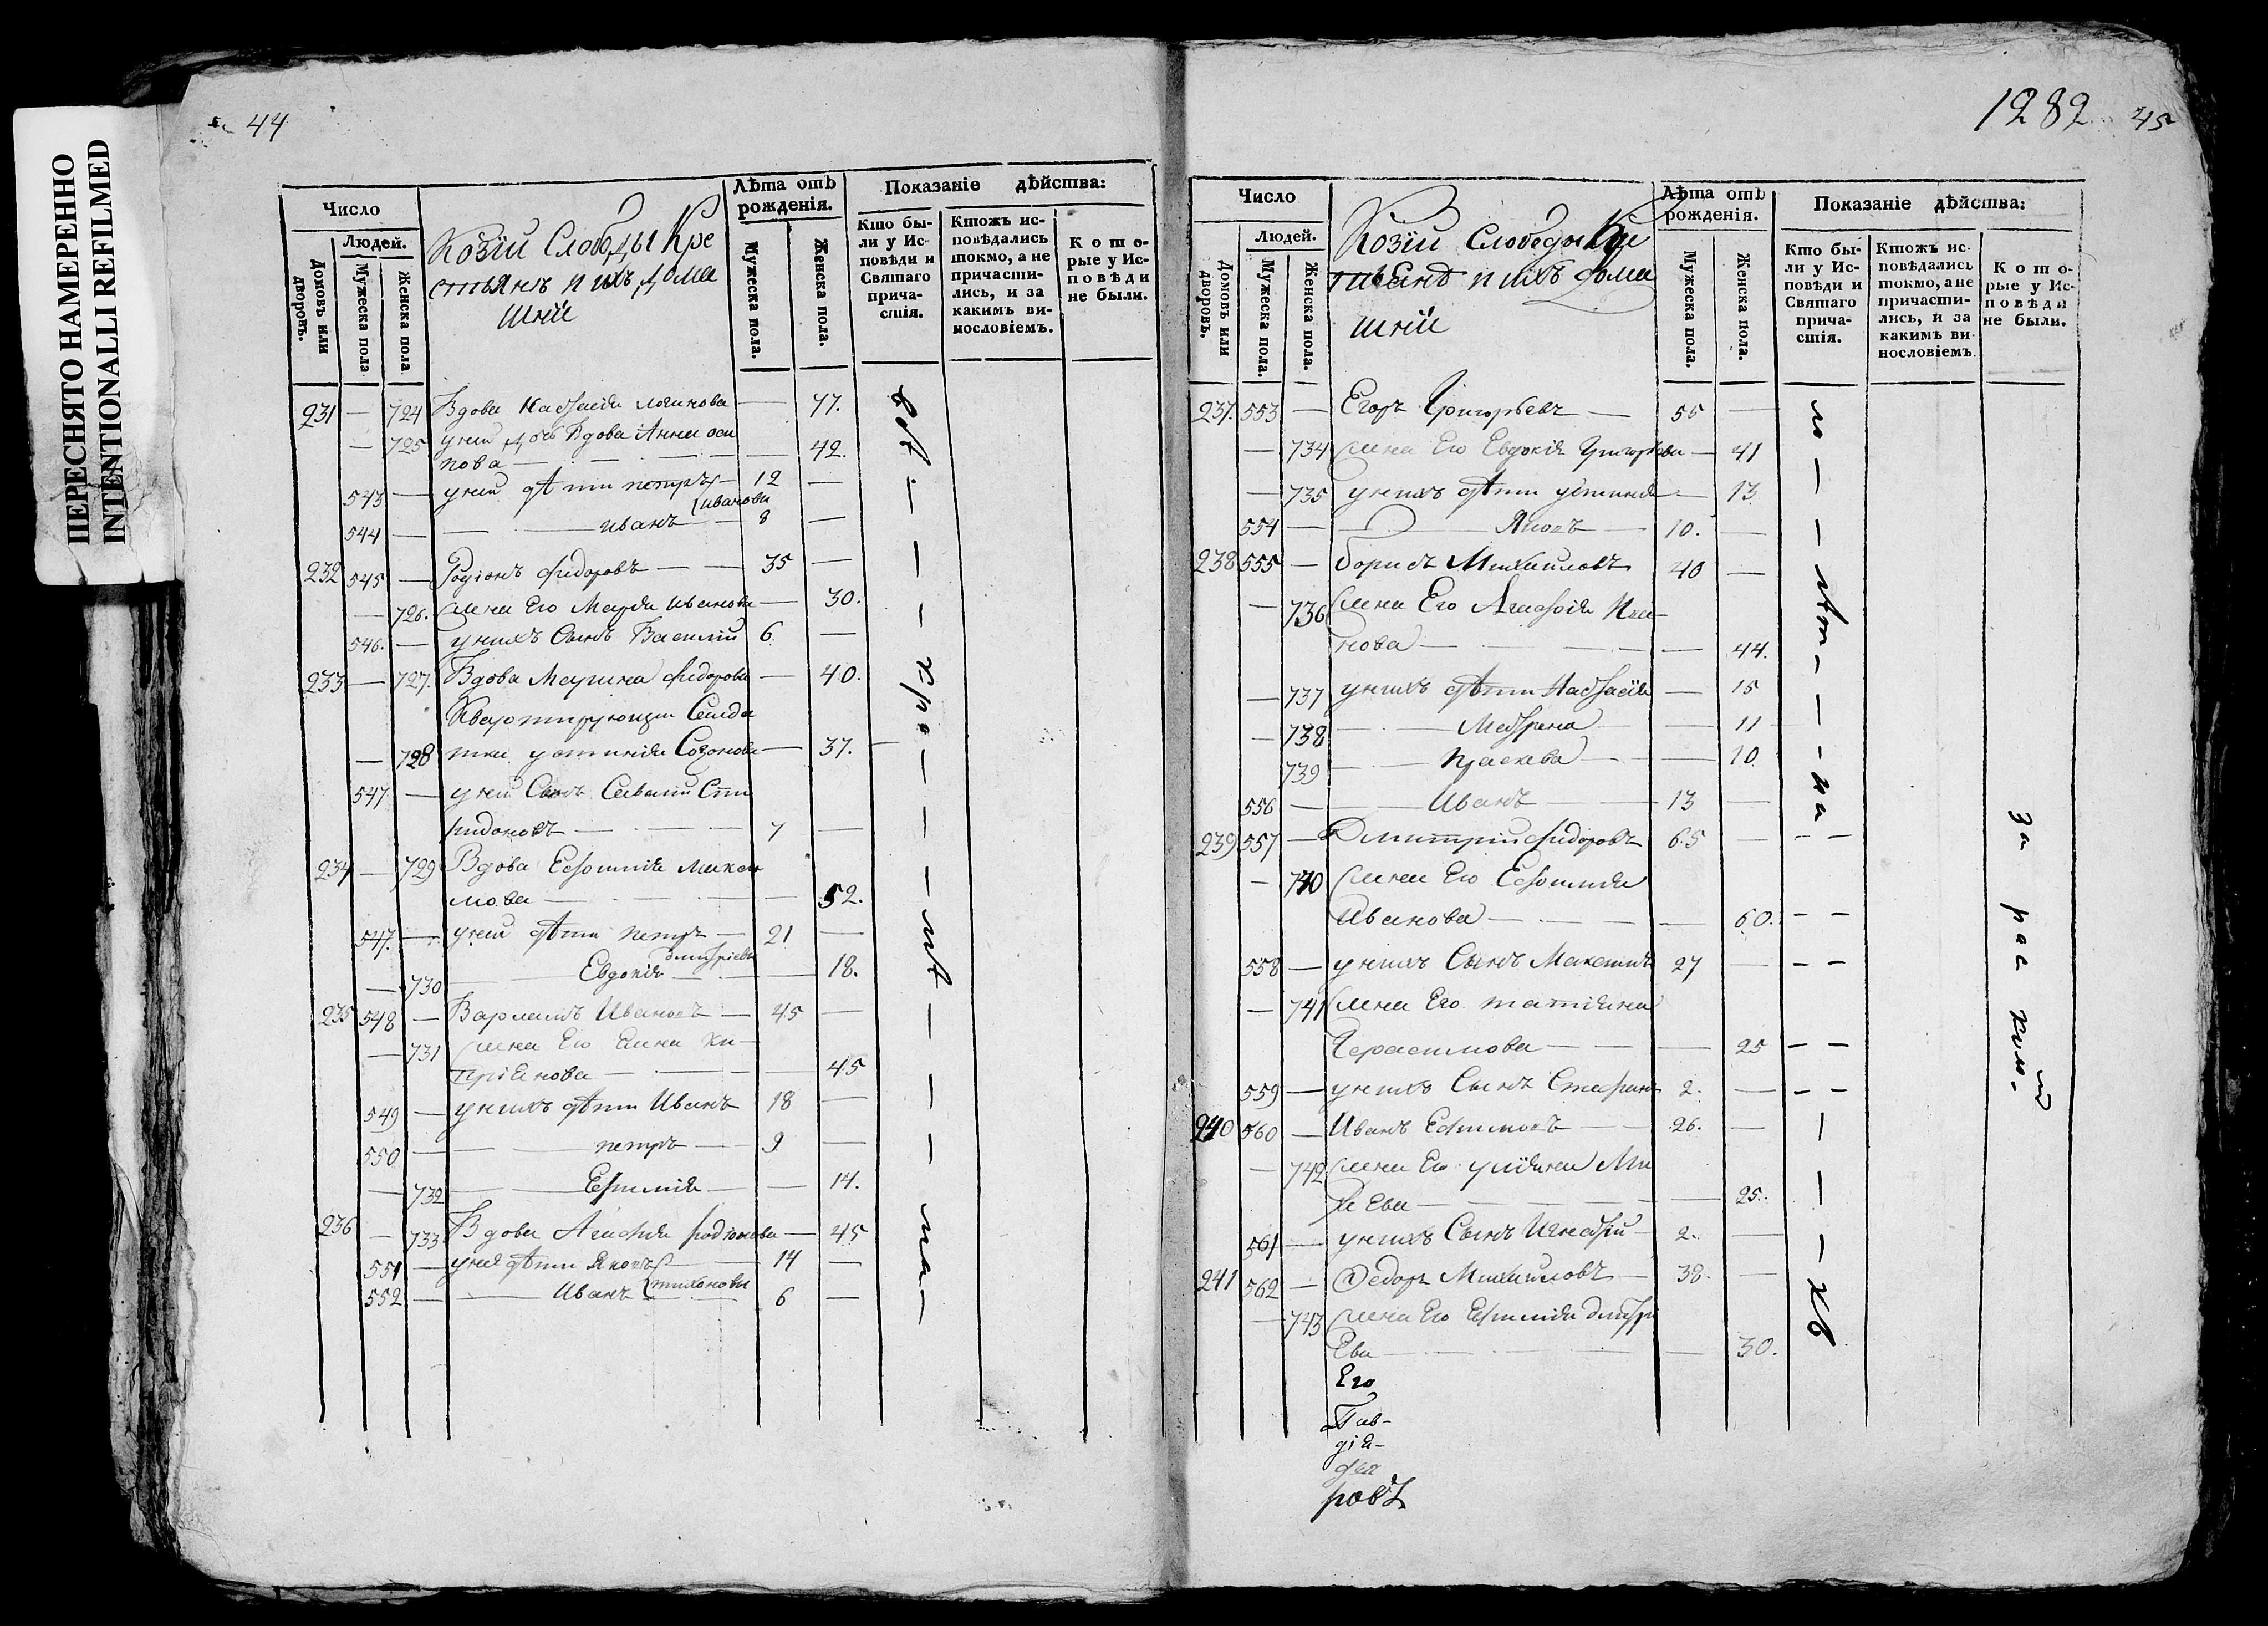 ПЕРЕСНЯТО НАМЕРЕННО
INTENTIONALLI REFILMED
44
Число
Людей.
Домовъ или дворовъ.
Мужеска пола
Женска пола
Козїй Слободы Кре
стьянъ и ихъ дома
шнїи
Лѣта отъ рожденїя.
Мужеска пола.
Женска пола.
Показанїе дѣйства:
Кто бы-
ли у Ис-
повѣди и
Святаго
прича-
стїя.
Ктожъ ис-
повѣдались
токмо, а не
причасти-
лись, и за
какимъ ви-
нословїемъ.
Кото-
рые у Ис-
повѣди
не были.
231 — 724 Вдова Настасїя логинова — 77.
— 725 уней дочь Вдова Анна оси
пова — 42.
543 — уней дѣти петръ — 12 —
ивановы
544 — иванъ — 8 —
232 545 — Родїонъ фидоровъ — 35 —
— 726. жена Его Марѳа иванова — 30.
546. — унихъ Сынъ Василий 6. —
233 — 727. Вдова Марина фидорова — 40.
Квартирующи Салда
— 728 тка устинїя Созонова — 37.
547. — уней Сынъ Савелий Спи
ридоновъ — 7 —
234 — 729 Вдова Ефимия макси
мова — 52.
547. — уней дѣти петръ — 21 —
дмитрїевы
— 730 Евдокїя — 18.
235 548 — Варламъ Ивановъ — 45 —
— 731 жена Его Анна Ки-
прїянова — 45
549 — унихъ дѣти Иванъ 18 —
550 — петръ — 9 —
— 732 Ефимия — 14.
236 — 733 Вдова Агафия родїонова — 45
551 — уней дѣти Яковъ — 14 —
552 — Иванъ тихоновы 6 —
1282 45
Число
Людей.
Домовъ или дворовъ.
Мужеска пола.
Женска пола.
Козїй Слободы Кре
стьянъ и ихъ дома
шнїи
Лѣта отъ рожденїя.
Мужеска пола.
Женска пола.
Показанїе дѣйства:
Кто бы-
ли у Ис-
повѣди и
Святаго
прича-
стїя.
Ктожъ ис-
повѣдались
токмо, а не
причасти-
лись, и за
какимъ ви-
нословїемъ.
Кото-
рые у Ис-
повѣди
не были.
237. 553 — Егоръ Григорьевъ — 55 —
— 734 жена Его Евдокїя Григорьева — 41
— 735 унихъ дѣти устиния — 13.
554 — Яковъ — 10. —
238 555 — борисъ Михайловъ 40 —
— 736 жена Его Агафїя
нова — 44.
— 737 унихъ дѣти Настасїя — 15
— 738 — Матрена — 11
739 — праскева — 10.
556 — Иванъ — 13 —
239 557 — Дмитрий фидоровъ 65 — — —
— 740 жена Его Ефимия
Иванова — 60. — —
558 — унихъ Сынъ Максимъ 27 — — —
— 741 жена Его татияна
Герасимова — 25 — —
559 — унихъ Сынъ Стефанъ 2. — — —
240 560 — Иванъ Ефимовъ — 26. — —
— 742 жена Его улїяна Ма
— 25. —
561 — унихъ Сынъ Игнатїй — 2. — —
241 562 — Федоръ Михайловъ — 38. —
— 743 жена Его Ефимия дмитрї
Ева — 30.
за раскол.
Его
ровъ